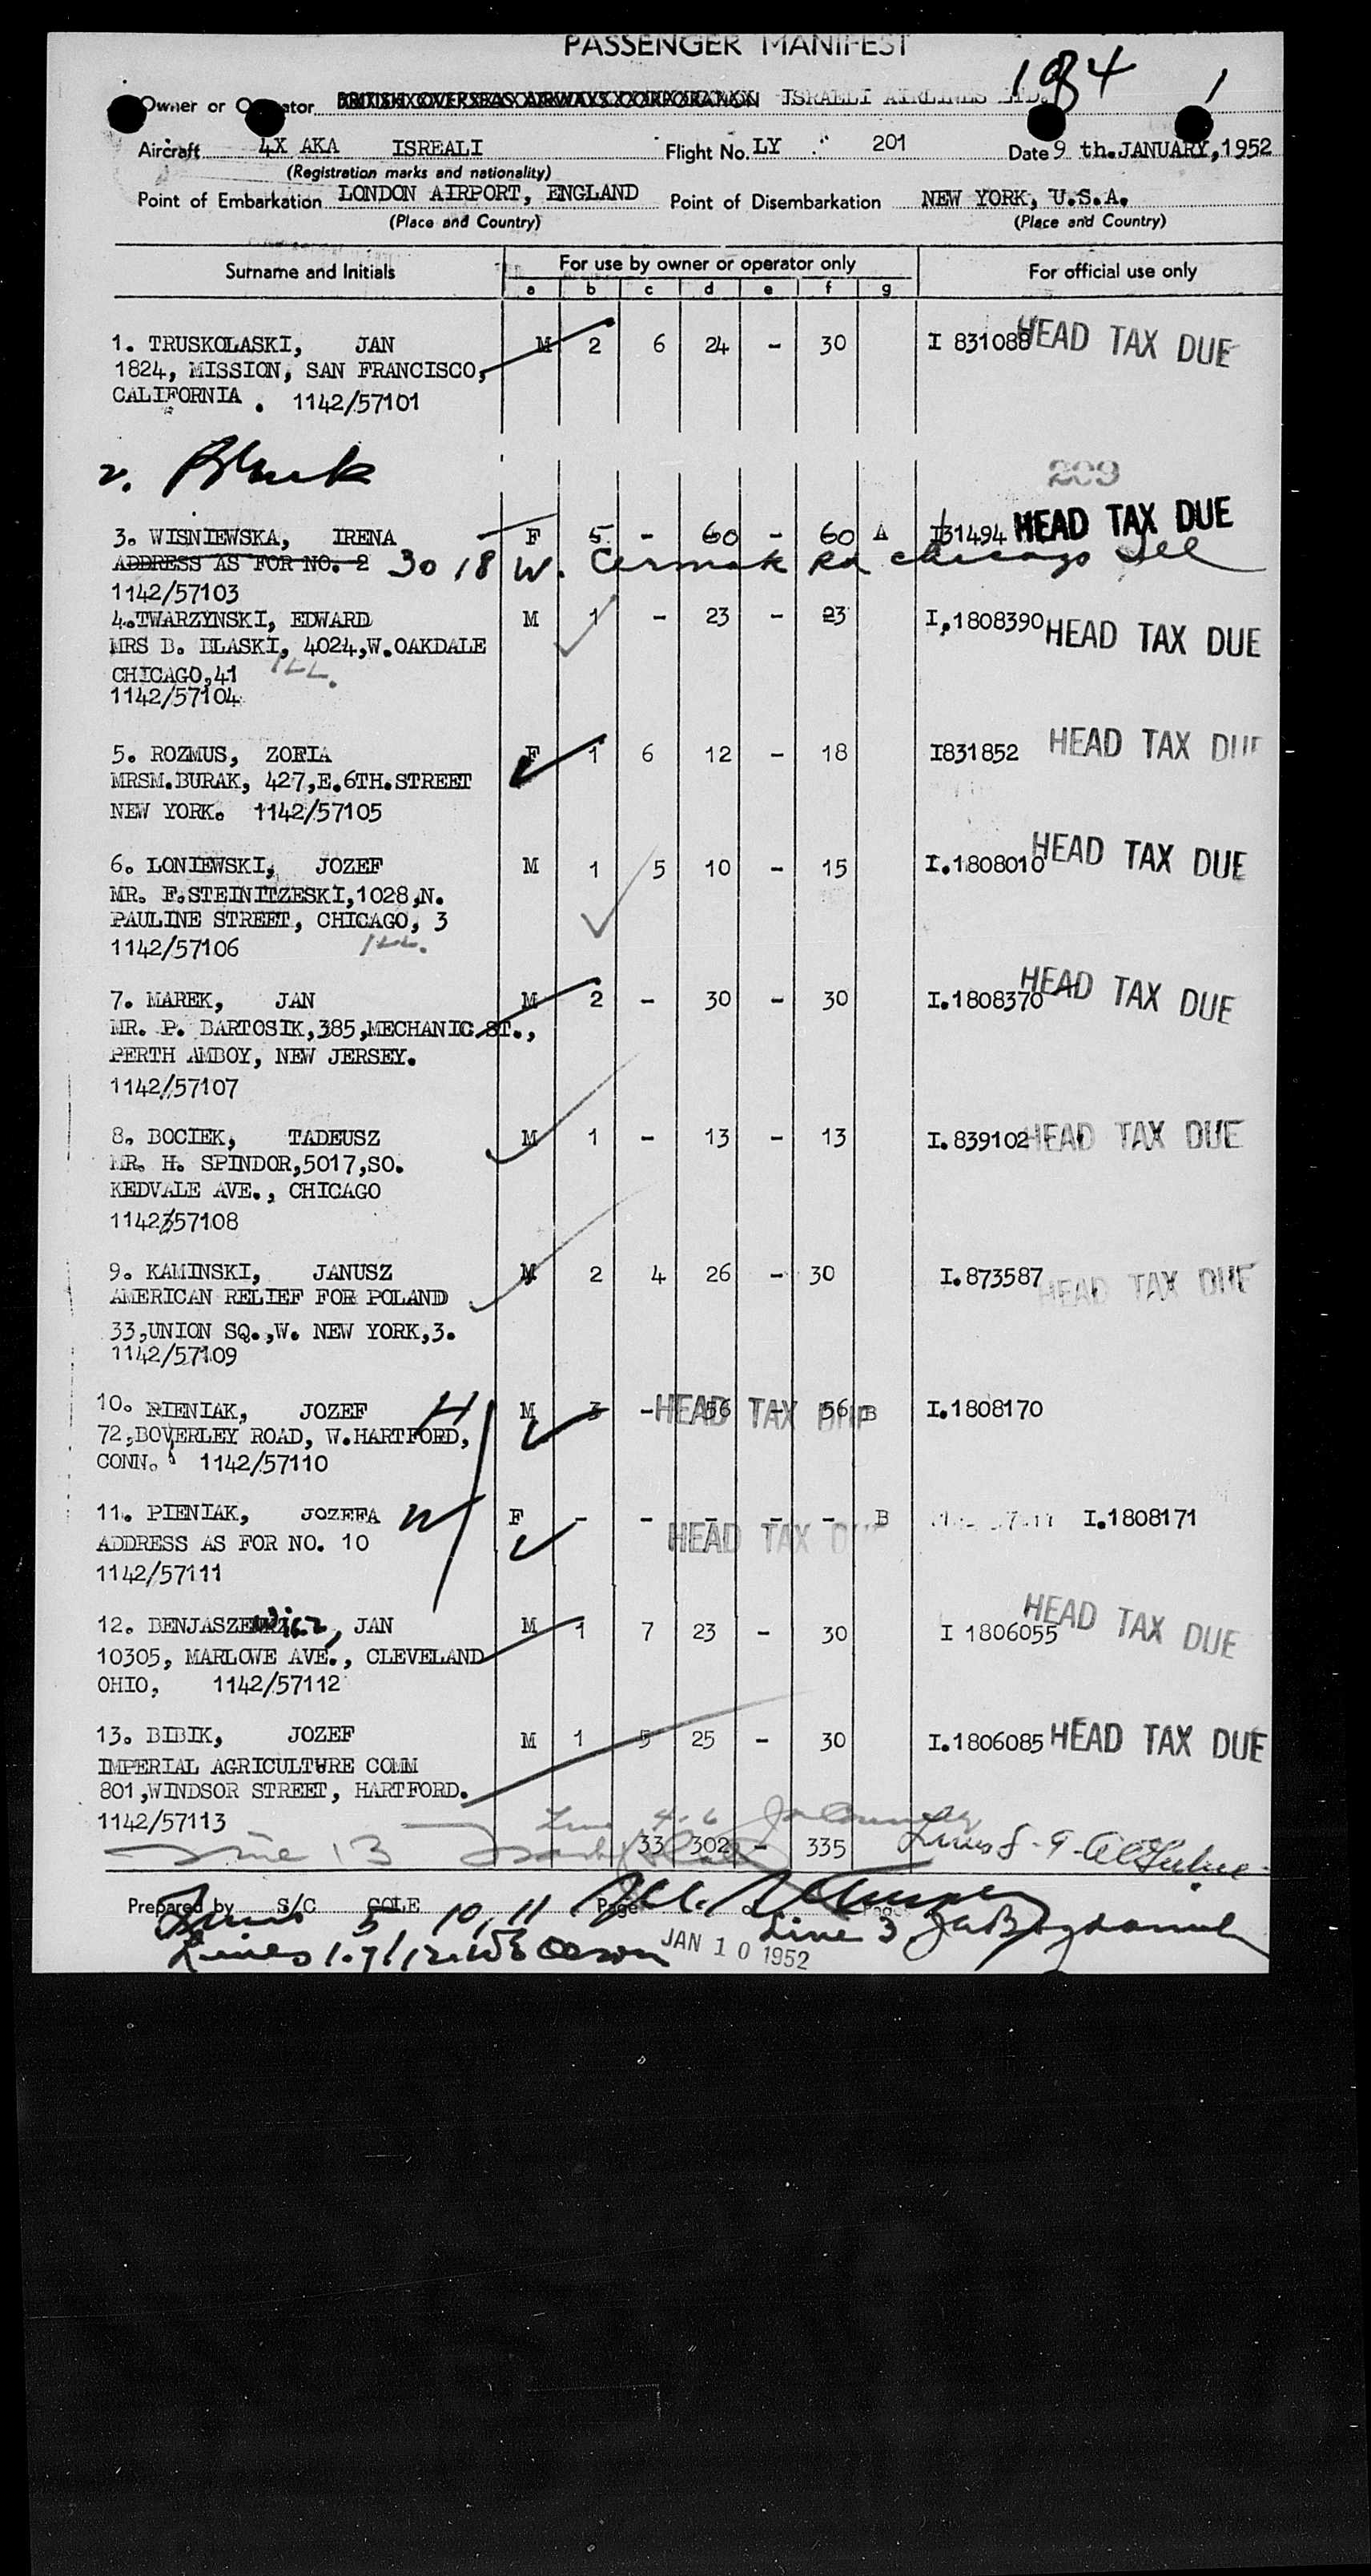 PASSENGER MANIFEST
184 1
Owner or Operator BRITISH OVERSEAS AIRWAYS CORPORATION ISRAELI AIRLINES LTD.
Aircraft 4X AKA ISREALI Flight No. LY 201 Date 9 th. JANUARY, 1952
(Registration marks and nationality)
Point of Embarkation LONDON AIRPORT, ENGLAND Point of Disembarkation NEW YORK, U.S.A.
(Place and Country) (Place and Country)
Surname and Initials For use by owner or operator only For official use only
a b c d e f g
1. TRUSKOLASKI, JAN M 2 6 24 - 30 I 831088 HEAD TAX DUE
1824, MISSION, SAN FRANCISCO,
CALIFORNIA. 1142/57101
2. Blank 209
3. WISNIEWSKA, IRENA F 5 - 60 - 60 A I31494 HEAD TAX DUE
ADDRESS AS FOR NO. 2 3018 W. Cermak Rd Chicago Ill
1142/57103
4. TWARZYNSKI, EDWARD M 1 - 23 - 23 I.1808390 HEAD TAX DUE
MRS B. BLASKI, 4024,W.OAKDALE
CHICAGO,41 ILL.
1142/57104
5. ROZMUS, ZOFIA F 1 6 12 - 18 I831852 HEAD TAX DUE
MRSM.BURAK, 427,E.6TH.STREET
NEW YORK. 1142/57105
6. LONIEWSKI, JOZEF M 1 5 10 - 15 I.1808010 HEAD TAX DUE
MR. F.STEINITZESKI,1028,N.
PAULINE STREET, CHICAGO, 3
1142/57106 ILL.
7. MAREK, JAN M 2 - 30 - 30 I.1808370 HEAD TAX DUE
MR. P. BARTOSIK,385,MECHANIC ST.,
PERTH AMBOY, NEW JERSEY.
1142/57107
8. BOCIEK, TADEUSZ M 1 - 13 - 13 I.839102 HEAD TAX DUE
MR. H. SPINDOR,5017,SO.
KEDVALE AVE., CHICAGO
1142/57108
9. KAMINSKI, JANUSZ M 2 4 26 - 30 I.873587 HEAD TAX DUE
AMERICAN RELIEF FOR POLAND
33,UNION SQ.,W. NEW YORK,3.
1142/57109
10. PIENIAK, JOZEF H M 3 - 56 - 56 B I.1808170 HEAD TAX DUE
72,BOVERLEY ROAD, W.HARTFORD,
CONN. 1142/57110
11. PIENIAK, JOZEFA W F - - - - - B I.1808171
ADDRESS AS FOR NO. 10 HEAD TAX DUE
1142/57111
12. BENJASZEWICZ, JAN M 1 7 23 - 30 I 1806055 HEAD TAX DUE
10305, MARLOWE AVE., CLEVELAND
OHIO, 1142/57112
13. BIBIK, JOZEF M 1 5 25 - 30 I.1806085 HEAD TAX DUE
IMPERIAL AGRICULTURE COMM
801,WINDSOR STREET, HARTFORD.
1142/57113
Line 4-6
Line 13 33 302 - 335 Lines 8-9
Prepared by S/C COLE Page of Pages
Lines 5 10, 11 Line 3
Lines 1-7/12 JAN 10 1952